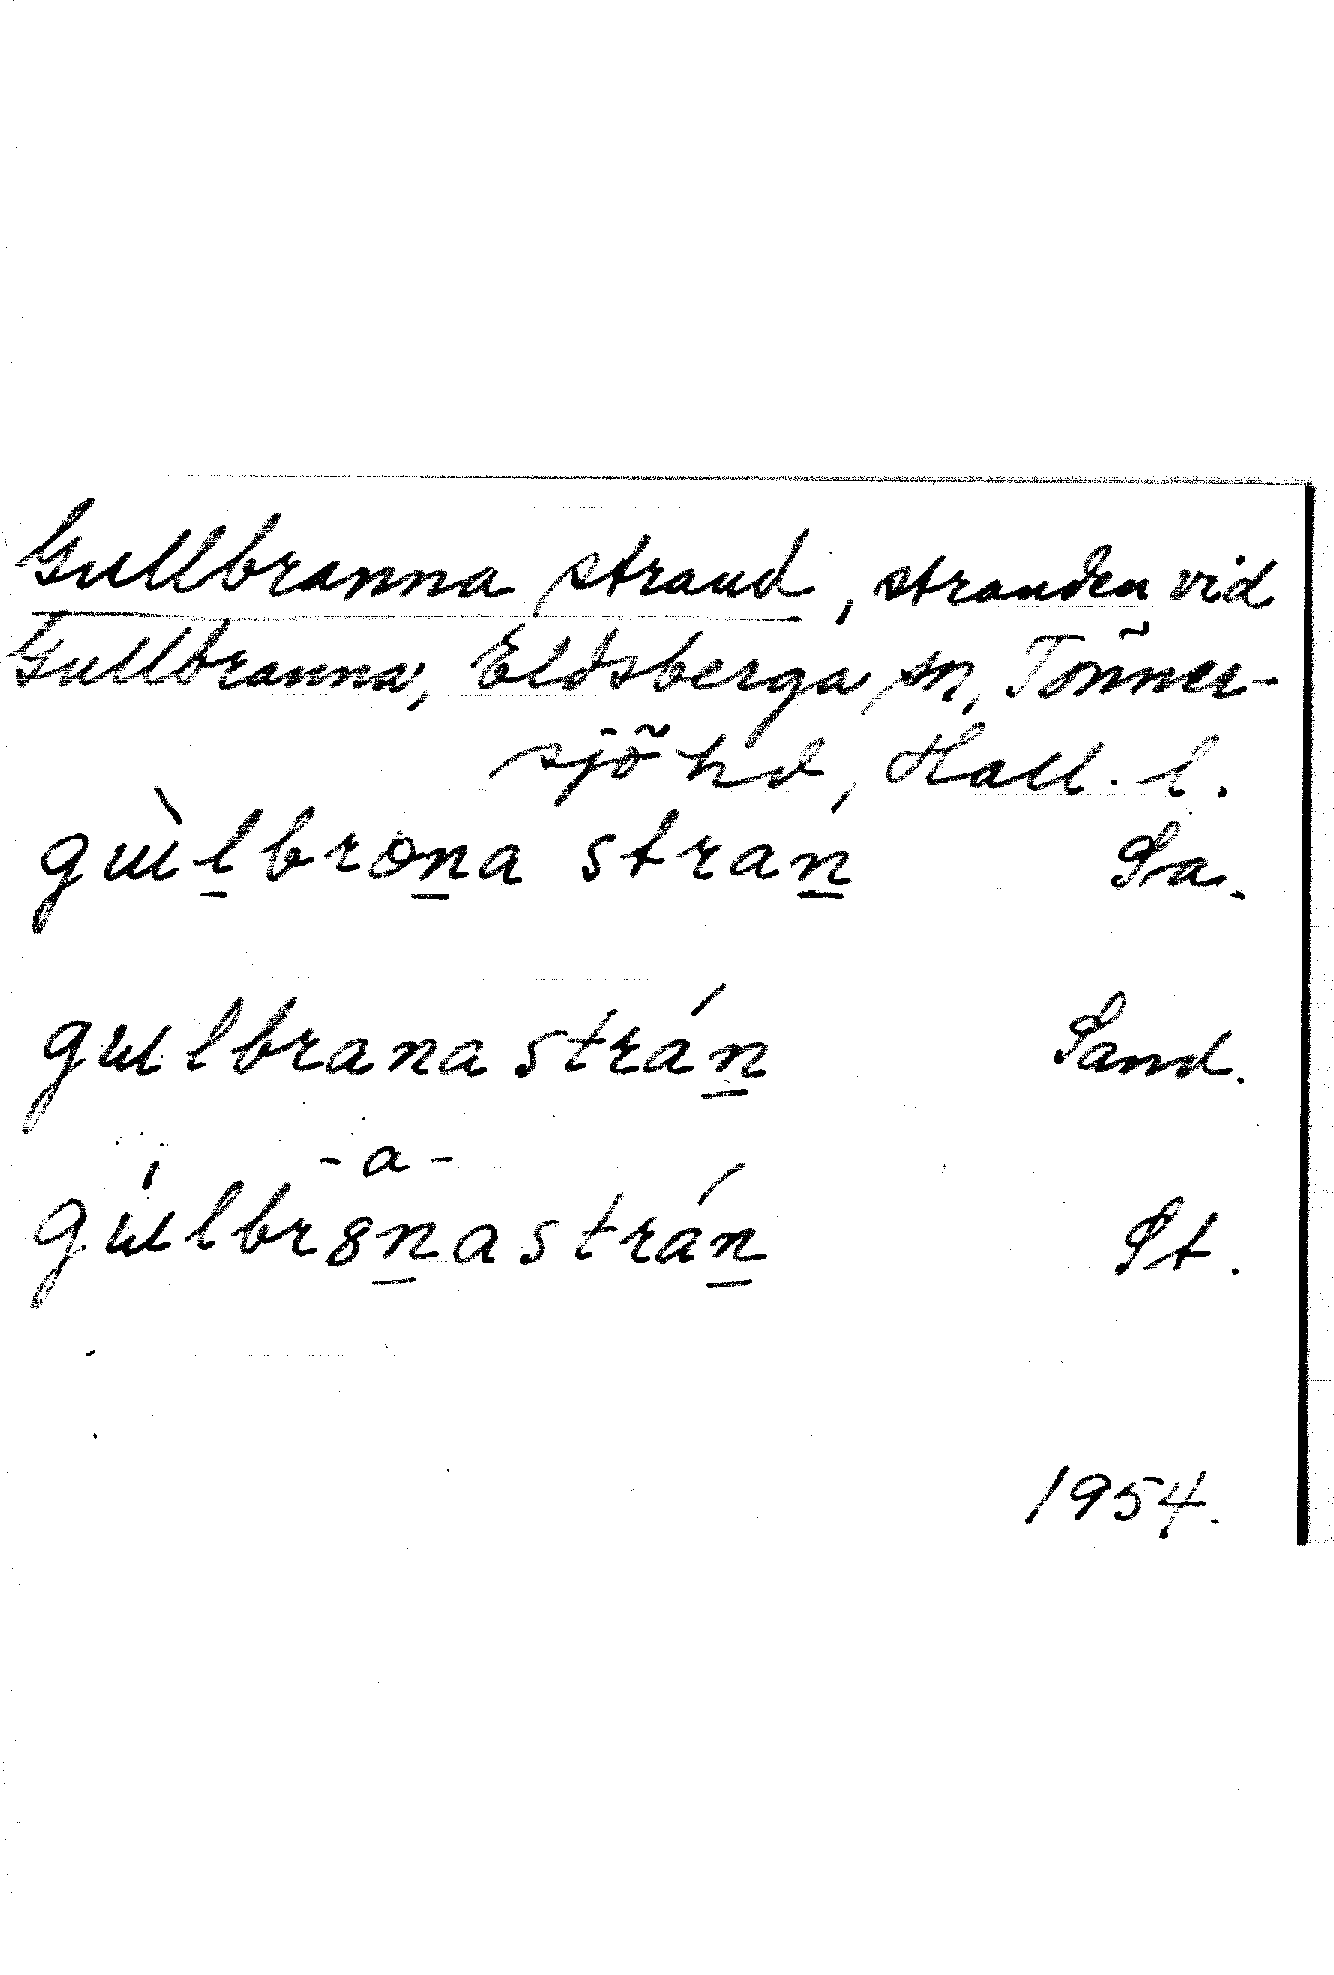 Gullbranna strand, stranden vid
Gullbranna, Eldsberga sn, Tönner-
sjö hd, Hall. l.
gɯ̀l̲brɑn̲a stran̲ Sa.
gɯlbrana strán̲ Sand.
-a-
gɯ̍lbr8n̲astrán̲ St.
1954.